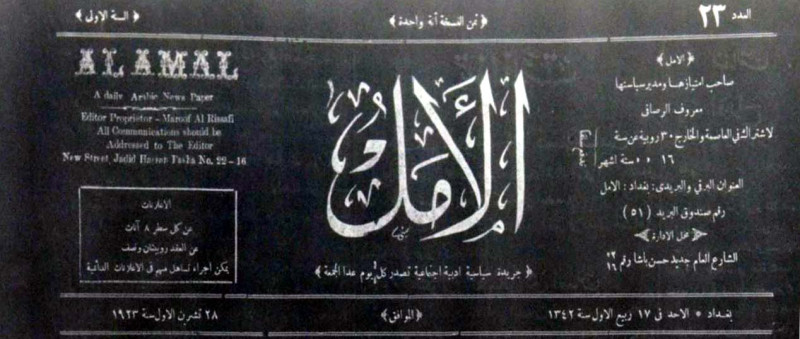 العدد ٢٣
﴿ ثمن النسخة آنة واحدة ﴾
﴿ السنة الاولى ﴾
﴿ الامل ﴾
صاحب امتيازها ومدير سياستها
معروف الرصافي
لاشتراك في العاصمة والخارج ٣٠ روبية عن سنة
١٦ » » ستة اشهر
تدفع سلفاً
العنوان البرقي والبريدي : بغداد : الامل
رقم صندوق البريد ( ٥١ )
﴿ محل الادارة ﴾
الشارع العام جديد حسن باشا رقم ٢٢/١٦
الأمل
﴿ جريدة سياسية ادبية اجتماعية تصدر كل يوم عدا الجمعة ﴾
AL AMAL
A daily Arabic News Paper
Editor Proprietor - Maroof Al Rissafi
All Communications should be
Addressed to The Editor
New Street, Jadid Hassan Pasha No. 22-16
الاعلانات
عن كل سطر ٨ آنات
عن العقد روبيتان ونصف
يمكن اجراء تساهل مهم في الاعلانات الدائمية
بغداد * الاحد في ١٧ ربيع الاول سنة ١٣٤٢
﴿ الموافق ﴾
٢٨ تشرين الاول سنة ١٩٢٣